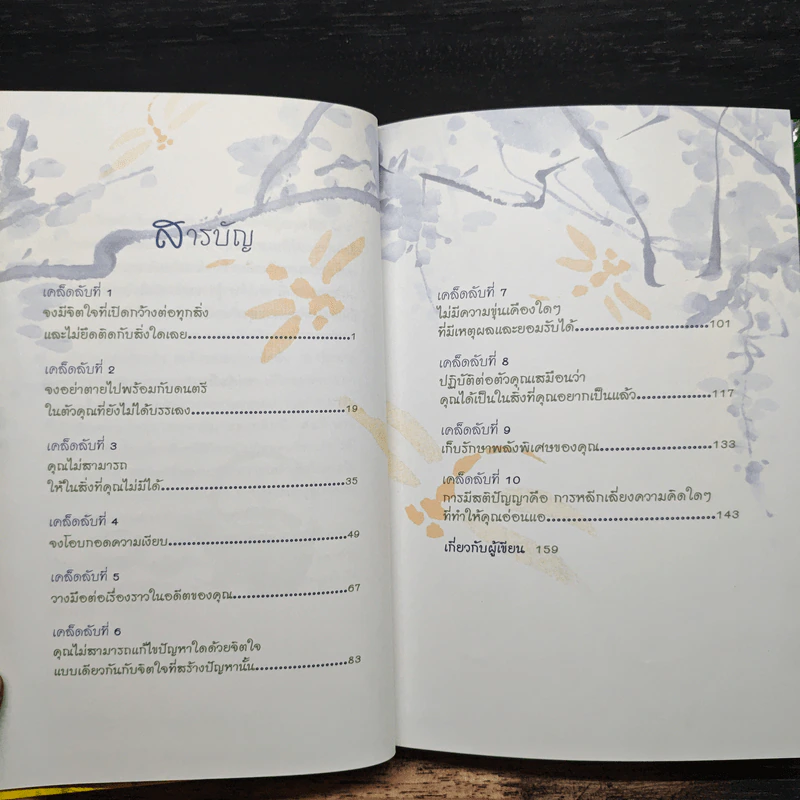 สารบัญ
เคล็ดลับที่ 1
จงมีจิตใจที่เปิดกว้างต่อทุกสิ่ง
และไม่ยึดติดกับสิ่งใดเลย.......................................1
เคล็ดลับที่ 2
จงอย่าตายไปพร้อมกับดนตรี
ในตัวคุณที่ยังไม่ได้บรรเลง.....................................19
เคล็ดลับที่ 3
คุณไม่สามารถ
ให้ในสิ่งที่คุณไม่มีได้.............................................35
เคล็ดลับที่ 4
จงโอบกอดความเงียบ............................................49
เคล็ดลับที่ 5
วางมือต่อเรื่องราวในอดีตของคุณ............................67
เคล็ดลับที่ 6
คุณไม่สามารถแก้ไขปัญหาใดด้วยจิตใจ
แบบเดียวกันกับจิตใจที่สร้างปัญหานั้น......................83
เคล็ดลับที่ 7
ไม่มีความขุ่นเคืองใดๆ
ที่มีเหตุผลและยอมรับได้.................................101
เคล็ดลับที่ 8
ปฏิบัติต่อตัวคุณเสมือนว่า
คุณได้เป็นในสิ่งที่คุณอยากเป็นแล้ว..................117
เคล็ดลับที่ 9
เก็บรักษาพลังพิเศษของคุณ............................133
เคล็ดลับที่ 10
การมีสติปัญญาคือ การหลีกเลี่ยงความคิดใดๆ
ที่ทำให้คุณอ่อนแอ..........................................143
เกี่ยวกับผู้เขียน 159